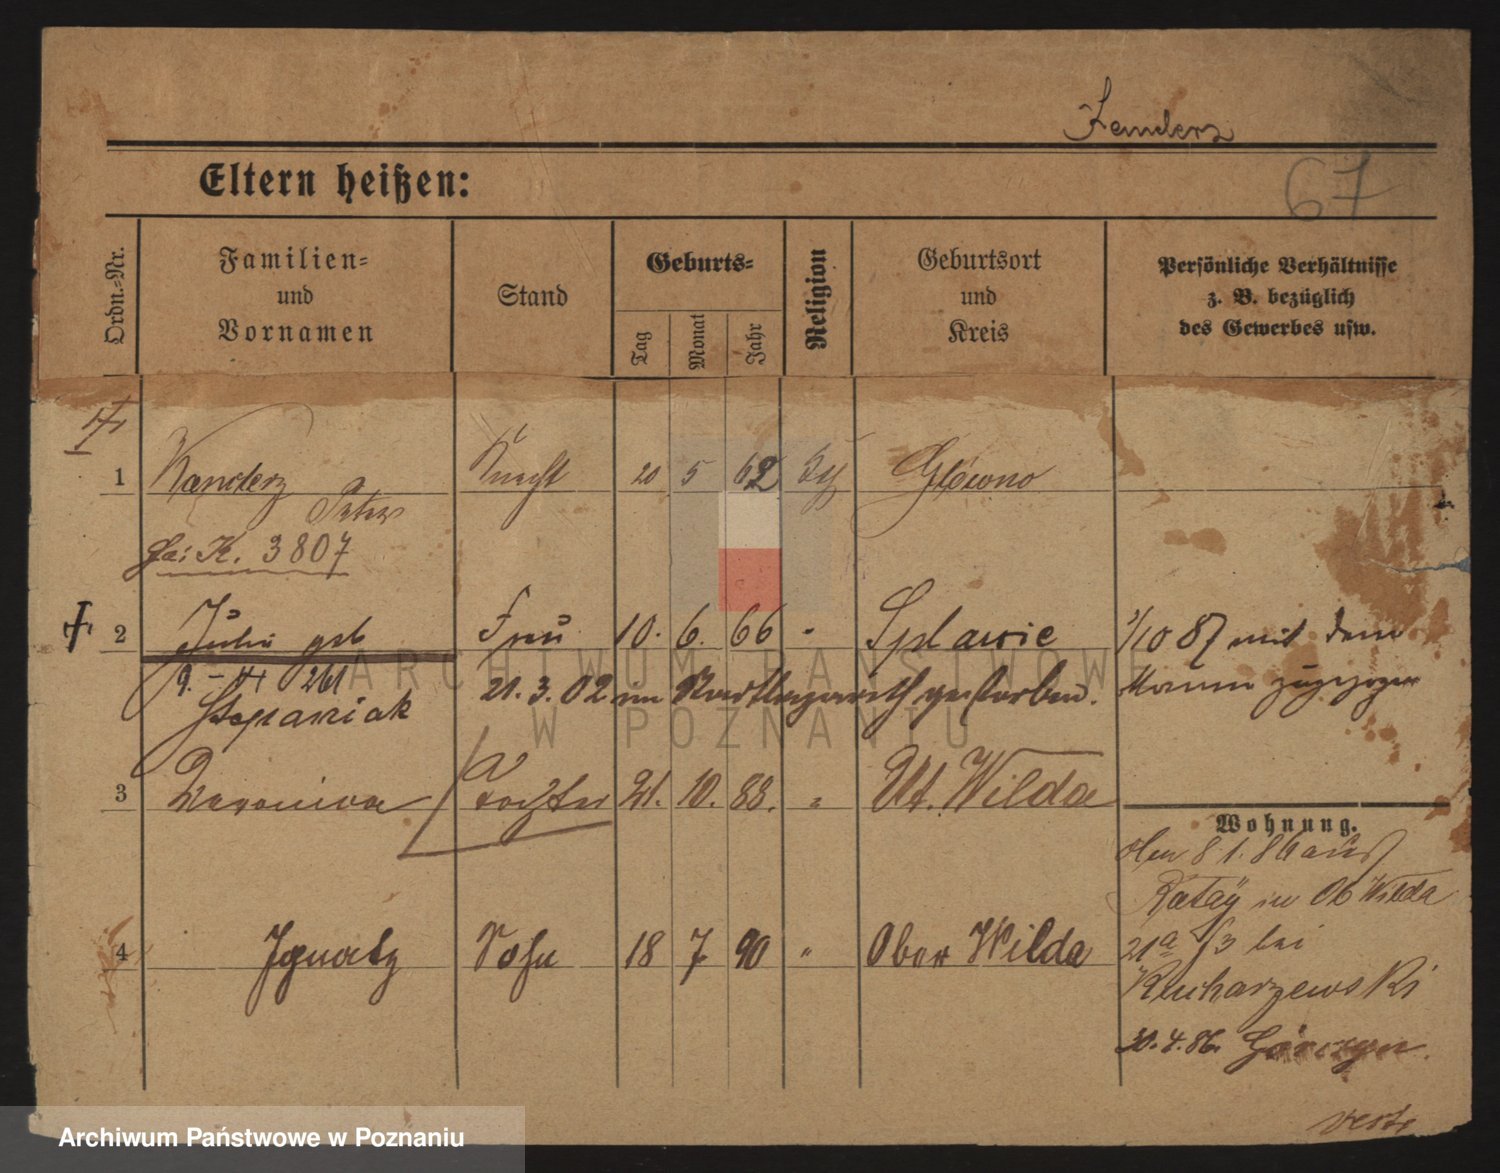 67
Eltern heißen:
Ordn.-Nr.
Familien-
und
Vornamen
Stand
Geburts-
Tag
Monat
Jahr
Religion
Geburtsort
und
Kreis
Persönliche Verhältnisse
z. B. bezüglich
des Gewerbes usw.
1 Kanderz Knecht 20 5 62 Glowno
Peter
K. 3807
2 geb Frau 10. 6. 66 " Splawie 1/10 87 mit dem
261 21. 3. 02 im Stadtlazareth gestorben. Manne zugezogen
Stepaniak
3 Veronica Tochter 21. 10. 88. " Ut. Wilda
Wohnung.
8 1. 86 aus
Rataÿ in Ob Wilda
4 Ignatz Sohn 18 7 90 " Ober Wilda
21a bei
Kucharzewski
30.4.86.
ARCHIWUM PAŃSTWOWE
W POZNANIU
Archiwum Państwowe w Poznaniu